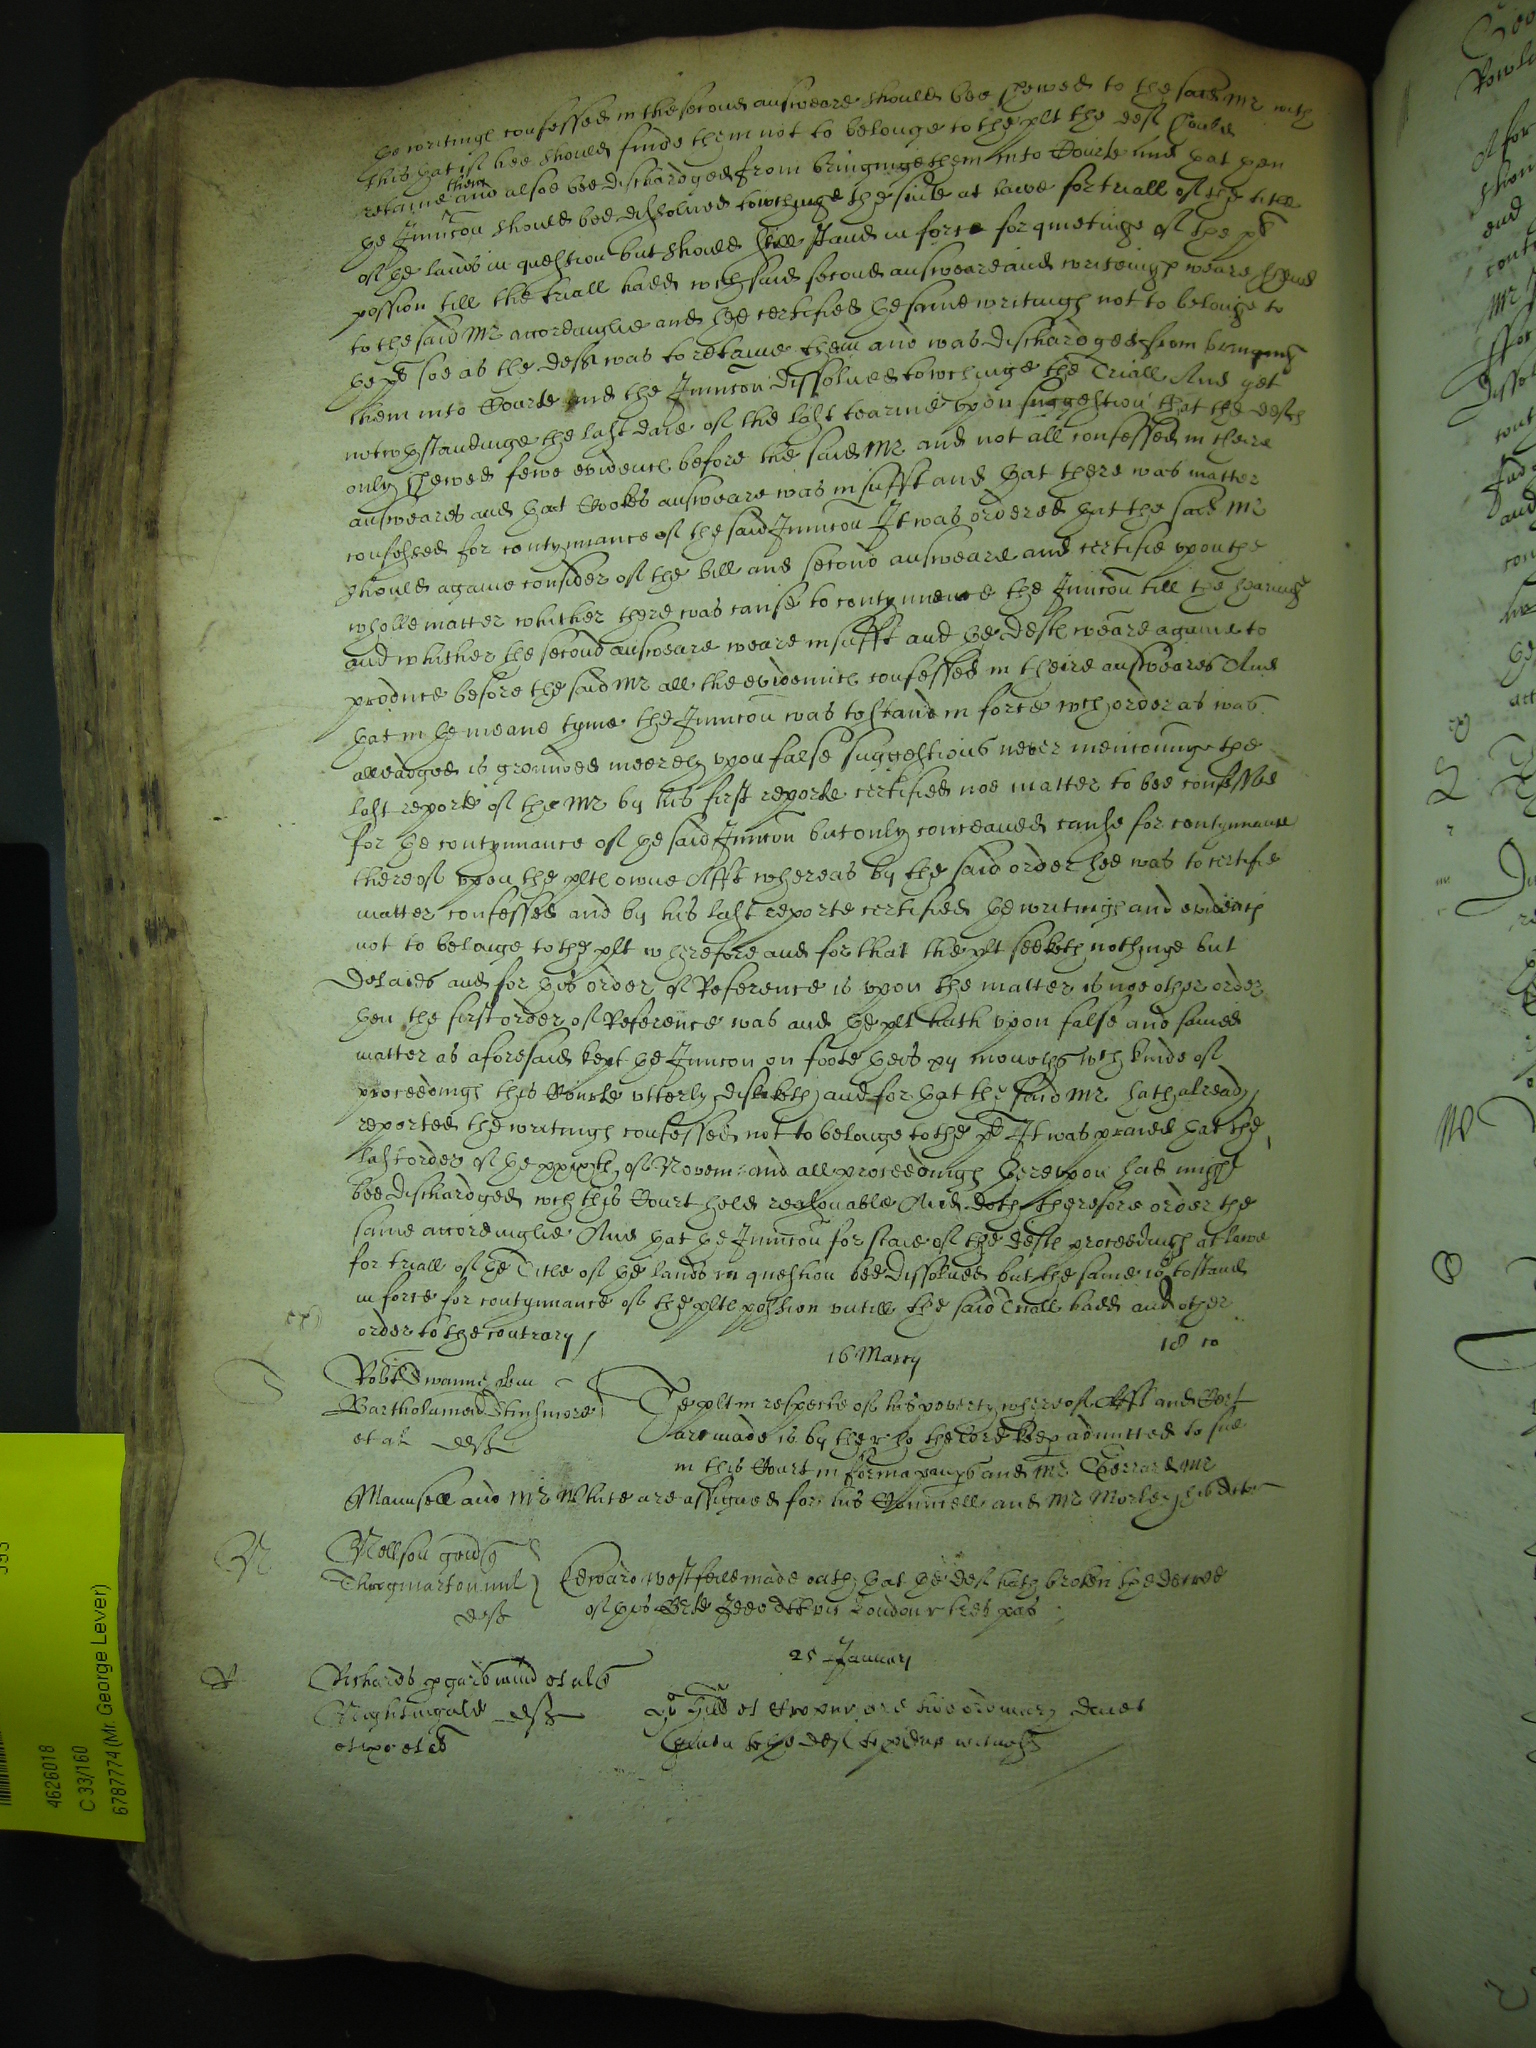 þe writinges confessed in the second answeare should bee shewed to the said Mr with
this þat if hee should finde them not to belonge to the plt the deft should
retaine them and alsoe bee dischardged from bringinge them into Courte And þat þen
þe Iniuncōn should bee dissolued towchinge the suite at lawe for triall of the title
of þe lands in question but should still stand in force for quietinge of the plts
possion till the triall hadd wch said second answeare and writeings weare shewed
to the said Mr accordinglie and hee certified þe same writings not to belonge to
þe plt soe as the deft was to retaine them and was dischardged from bringing
them into Courte and the Iniuncōn dissolued towchinge the Triall And yet
notwthstandinge the last daie of the last tearme vpon suggestion that the defts
only shewed fewe evidences before the said Mr and not all confessed in theire
answeares and þat Cookes answeare was insufft and þat there was matter
confessed for contynnance of the said Iniuncōn It was ordered þat the said Mr
should againe consider of the bill and second answeare and certifie vpon the
wholle matter whither there was cause to contynue the Iniuncōn till the hearinge
and whither the second answeare weare insufft and þe defts weare againe to
produce before the said Mr all the evidences confessed in theire answeares And
þat in þe meane tyme the Iniuncōn was to stand in force wch order as was
alleadged is grounded meerely vpon false suggestions never menconinge the
last reporte of the Mr by his first reporte certified noe matter to bee confessed
for þe contynnance of þe said Iniuncōn but only conceaued cause for contynnance
thereof vpon the plts owne Afft whereas by the said order hee was to certifie
matter confessed and by his last reporte certified þe writings and evidences
not to belonge to the plt wherefore and for that the plt seeketh nothinge but
delaies and for þis order of Reference is vpon the matter is noe other order
þen the first order of Reference was and þe plt hath vpon false and fained
matter as aforesaid kept þe Iniuncōn on foote þeis xy moneths wch kinde of
proceedings this Courte vtterly disliketh and for þat the said Mr hath already
reported the writings confessed not to belonge to the plt It was praied þat the
last order of þe xxixth of Novem: and all proceedings þerevpon had might
bee dischardged wch this Court held reasonable And doth therefore order the
same accordinglie And þat þe Iniuncōn for staie of the defts proceedings at lawe
for triall of þe Title of þe lands in question bee dissolued but the same is to stand
in force for contynnance of the plts possion vntill the said Triall hadd and other
order to the contrary
16 Marcy 18 10
Robt Swanne
Bartholamew Stinsmore
et al deft
The plt in respecte of his poverty whereof Afft and Cert
are made is by the r ho the lord keep admitted to sue
in this Court in forma paups and Mr Gerrard Mr
Maunsell and Mr White are assigned for his Counsell and Mr Morley his Attor
N Nellson
Throgmarton mil
deft
Edward made oath þat þe deft hath broken the decree
of þis Courte London
25 January
R Richards
Nightingale deft
et ux et al
are two ordinary daies
giuen to þe deft to pduce witness
4626018
C 33/160
6787774 (Mr. George Lever)